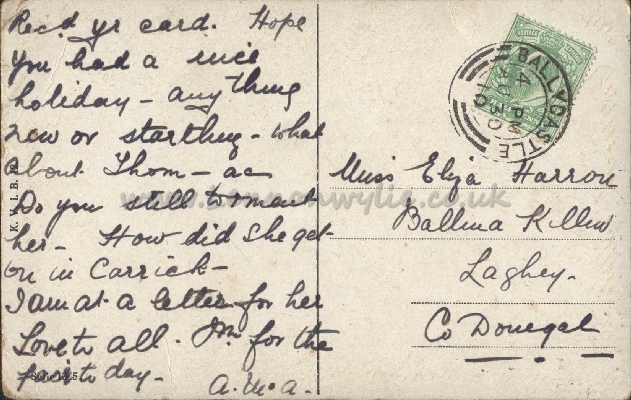 Rec'd yr card. Hope
you had a nice
holiday - anything
new or starthing - what
about Thom - ac
Do you still to
her - How did She get
on in Carrick -
I am at a letter for her
Love to all. for the
to day -
A. McA.
E. W. I. B.
BALLYCASTLE
4 PM
AU 30
10
Miss Eliza Harron
Ballina Killew
Laghey -
Co Donegal